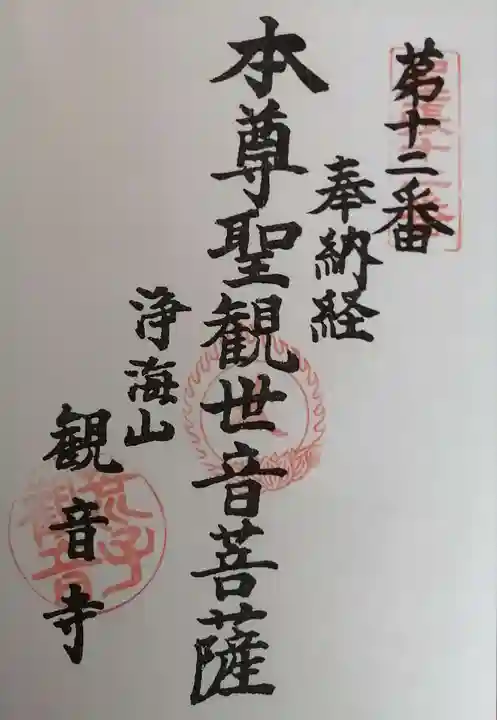 第十二番
奉納経
本尊聖観世音菩薩
浄海山
観音寺
荒子観音